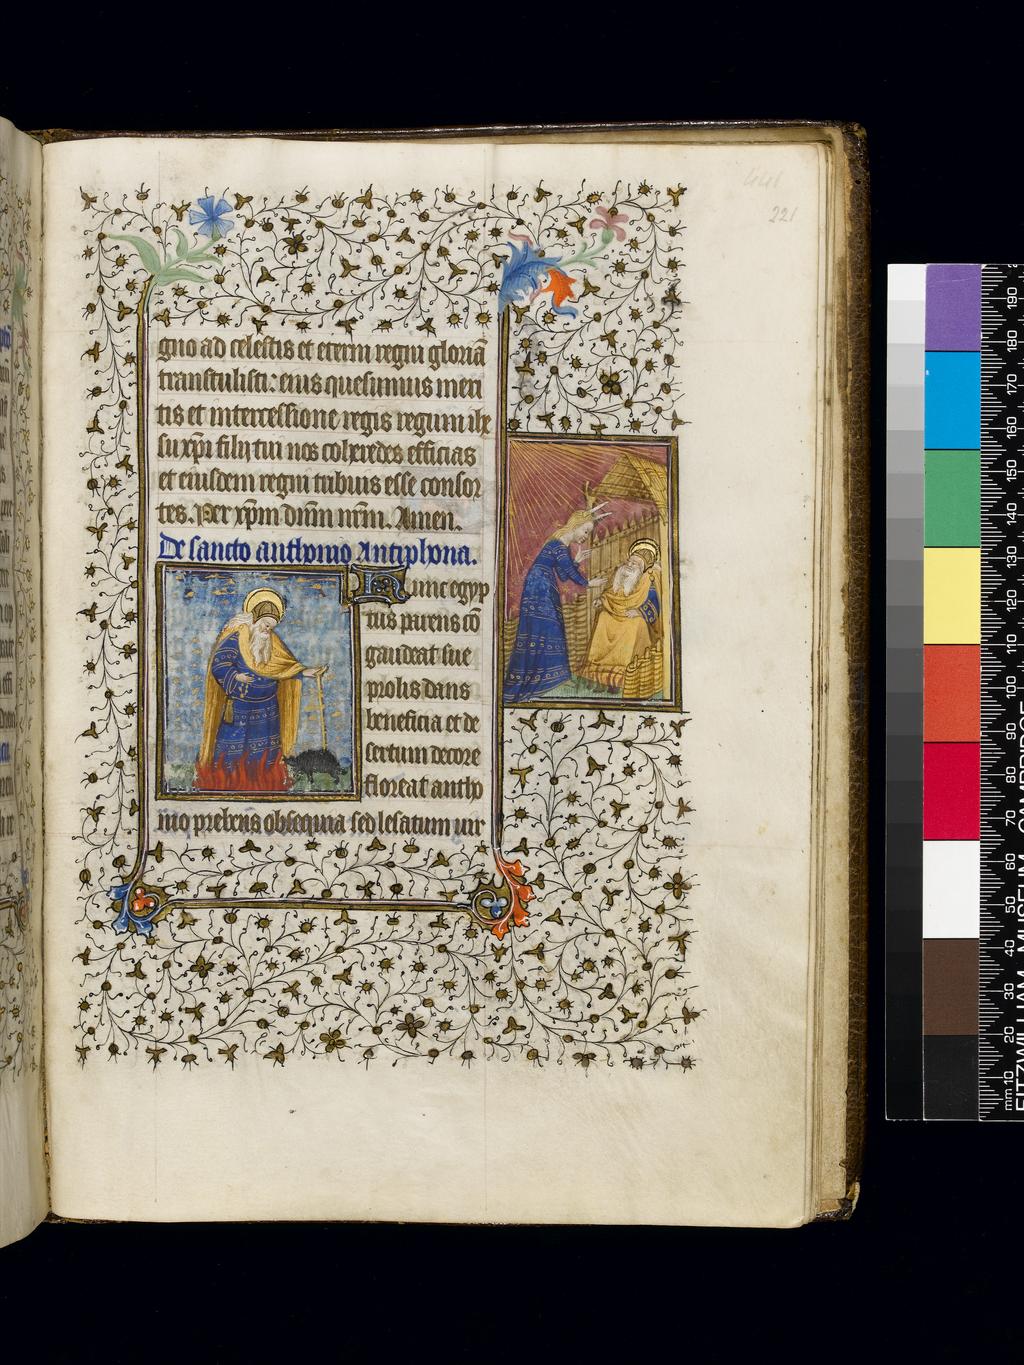 441
221
gno ad celestis et eterni regni gloriā
transtulisti: eius quesumus meri
tis et intercessione regis regum ihe
su xp̄i filij tui nos coheredes efficias
et eiusdem regni tribuis esse consor
tes. Per xp̄m dn̄m nr̄m. Amen.
De sancto anthonio Antiphona.
Nunc egyp
tus parens cō
gaudeat sue
prolis dans
beneficia et de
sertum decore
floreat antho
nio prebens obsequia sed lesatum vir
mm 10 20 30 40 50 60 70 80 90 100 110 120 130 140 150 160 170 180 190
FITZWILLIAM MUSEUM, CAMBRIDGE